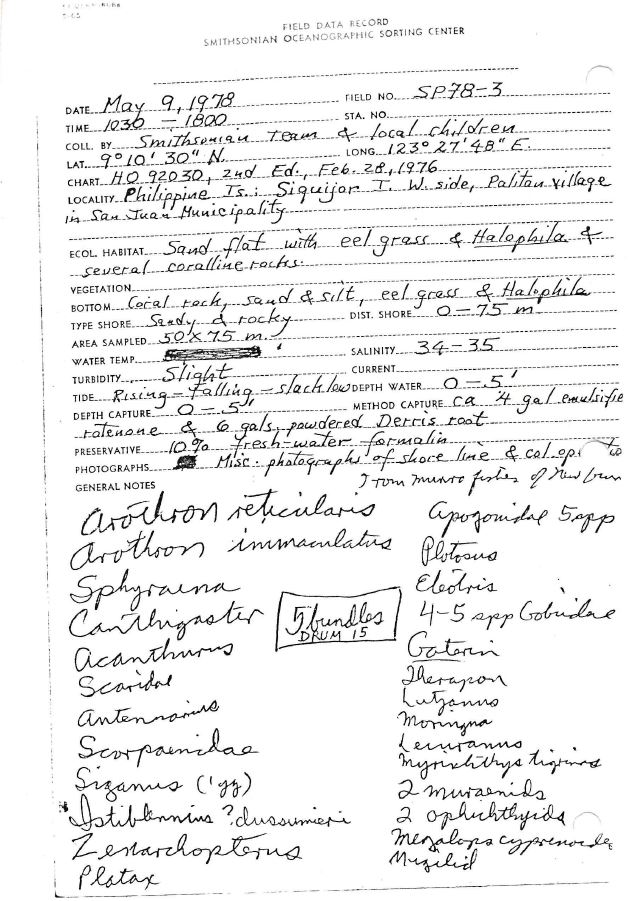 FIELD DATA RECORD
SMITHSONIAN OCEANOGRAPHIC SORTING CENTER
DATE May 9, 1978 FIELD NO. SP78-3
TIME 1030 - 1800 STA. NO.
COLL. BY Smithsonian Team & local children
LAT. 9°10'30" N. LONG. 123°27'48" E.
CHART HO 92030, 2nd Ed., Feb. 28, 1976
LOCALITY Philippine Is.: Siquijor I. W. side, Palitan village
in San Juan Municipality
ECOL. HABITAT Sand flat with eel grass & Halophila &
several coralline rocks.
VEGETATION
BOTTOM Coral rock, sand & silt, eel grass & Halophila
TYPE SHORE Sandy & rocky DIST. SHORE 0-75 m
AREA SAMPLED 50 x 75 m.
WATER TEMP. SALINITY 34-35
TURBIDITY Slight CURRENT
TIDE Rising - falling - slack low DEPTH WATER 0-.5'
DEPTH CAPTURE 0-.5' METHOD CAPTURE ca 4 gal emulsifie
rotenone & 6 gals. powdered Derris root
PRESERVATIVE 10% fresh-water formalin
PHOTOGRAPHS Misc. photographs of shore line & col. op.
GENERAL NOTES from munro fishes of New
Arothron reticularis
Arothron immaculatus
Sphyraena
Canthigaster
Acanthurus
Scaridae
Antennarius
Scorpaenidae
Siganus ('yy)
Istiblennius ? dussumieri
Zenarchopterus
Platax
5 bundles
DRUM 15
Apogonidae 5 spp
Plotosus
Eleotris
4-5 spp Gobiidae
Gaterin
Therapon
Lutjanus
Moringua
Leiuranus
Myrichthys tigrinus
2 muraenids
2 ophichthyids
Megalops cyprenoide
Mugilid